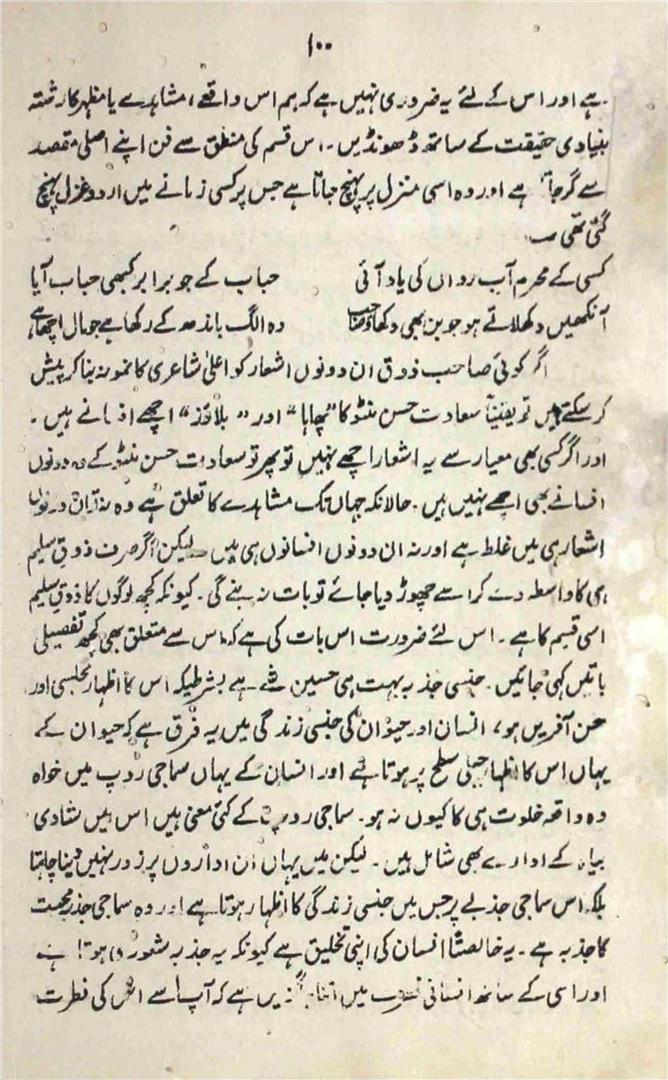 ۱۰۰
ہے اور اس کے لئے یہ ضروری نہیں ہے کہ ہم اس واقعے، مشاہدے یا مظہر کا رشتہ
بنیادی حقیقت کے ساتھ ڈھونڈیں۔ اس قسم کی منطق سے فن اپنے اصلی مقصد
سے گر جاتا ہے اور وہ اسی منزل پر پہنچ جاتا ہے جس پر کسی زمانے میں اردو غزل پہنچ
گئی تھی
کسی کے محرم آب رواں کی یاد آئی حباب کے جو برابر کبھی حباب آیا
آنکھیں دکھلاتے ہو جوبن بھی دکھاؤ صاحب وہ الگ باندھ کے رکھا ہے جو مال اچھا ہے
اگر کوئی صاحب ذوق ان دونوں اشعار کو اعلیٰ شاعری کا نمونہ بنا کر پیش
کر سکتے ہیں تو یقیناً سعادت حسن منٹو کا "پھاہا" اور "بلاؤز" اچھے افسانے ہیں۔
اور اگر کسی بھی معیار سے یہ اشعار اچھے نہیں تو پھر تو سعادت حسن منٹو کے وہ دونوں
افسانے بھی اچھے نہیں ہیں۔ حالانکہ جہاں تک مشاہدے کا تعلق ہے وہ نہ تو ان دونوں
اشعار ہی میں غلط ہے اور نہ ان دونوں افسانوں ہی میں لیکن اگر صرف ذوق سلیم
ہی کا واسطہ دے کر اسے چھوڑ دیا جائے تو بات نہ بنے گی۔ کیونکہ کچھ لوگوں کا ذوق سلیم
اسی قسم کا ہے۔ اس لئے ضرورت اس بات کی ہے کہ اس سے متعلق بھی کچھ تفصیلی
باتیں کہی جائیں۔ جنسی جذبہ بہت ہی حسین شے ہے بشرطیکہ اس کا اظہار مجلسی اور
حسن آفریں ہو، انسان اور حیوان کی جنسی زندگی میں یہ فرق ہے کہ حیوان کے
یہاں اس کا اظہار جبلی سطح پر ہوتا ہے اور انسان کے یہاں سماجی روپ میں خواہ
وہ واقعہ خلوت ہی کا کیوں نہ ہو۔ سماجی روپ کے کئی معنی ہیں اس میں شادی
بیاہ کے ادارے بھی شامل ہیں۔ لیکن میں یہاں ان اداروں پر زور نہیں دینا چاہتا
بلکہ اس سماجی جذبے پر جس میں جنسی زندگی کا اظہار ہوتا ہے اور وہ سماجی جذبہ محبت
کا جذبہ ہے۔ یہ خالصتاً انسان کی اپنی تخلیق ہے کیونکہ یہ جذبہ شعوری ہوتا ہے
اور اسی کے ساتھ انسانی میں ہے کہ آپ اسے اس کی فطرت